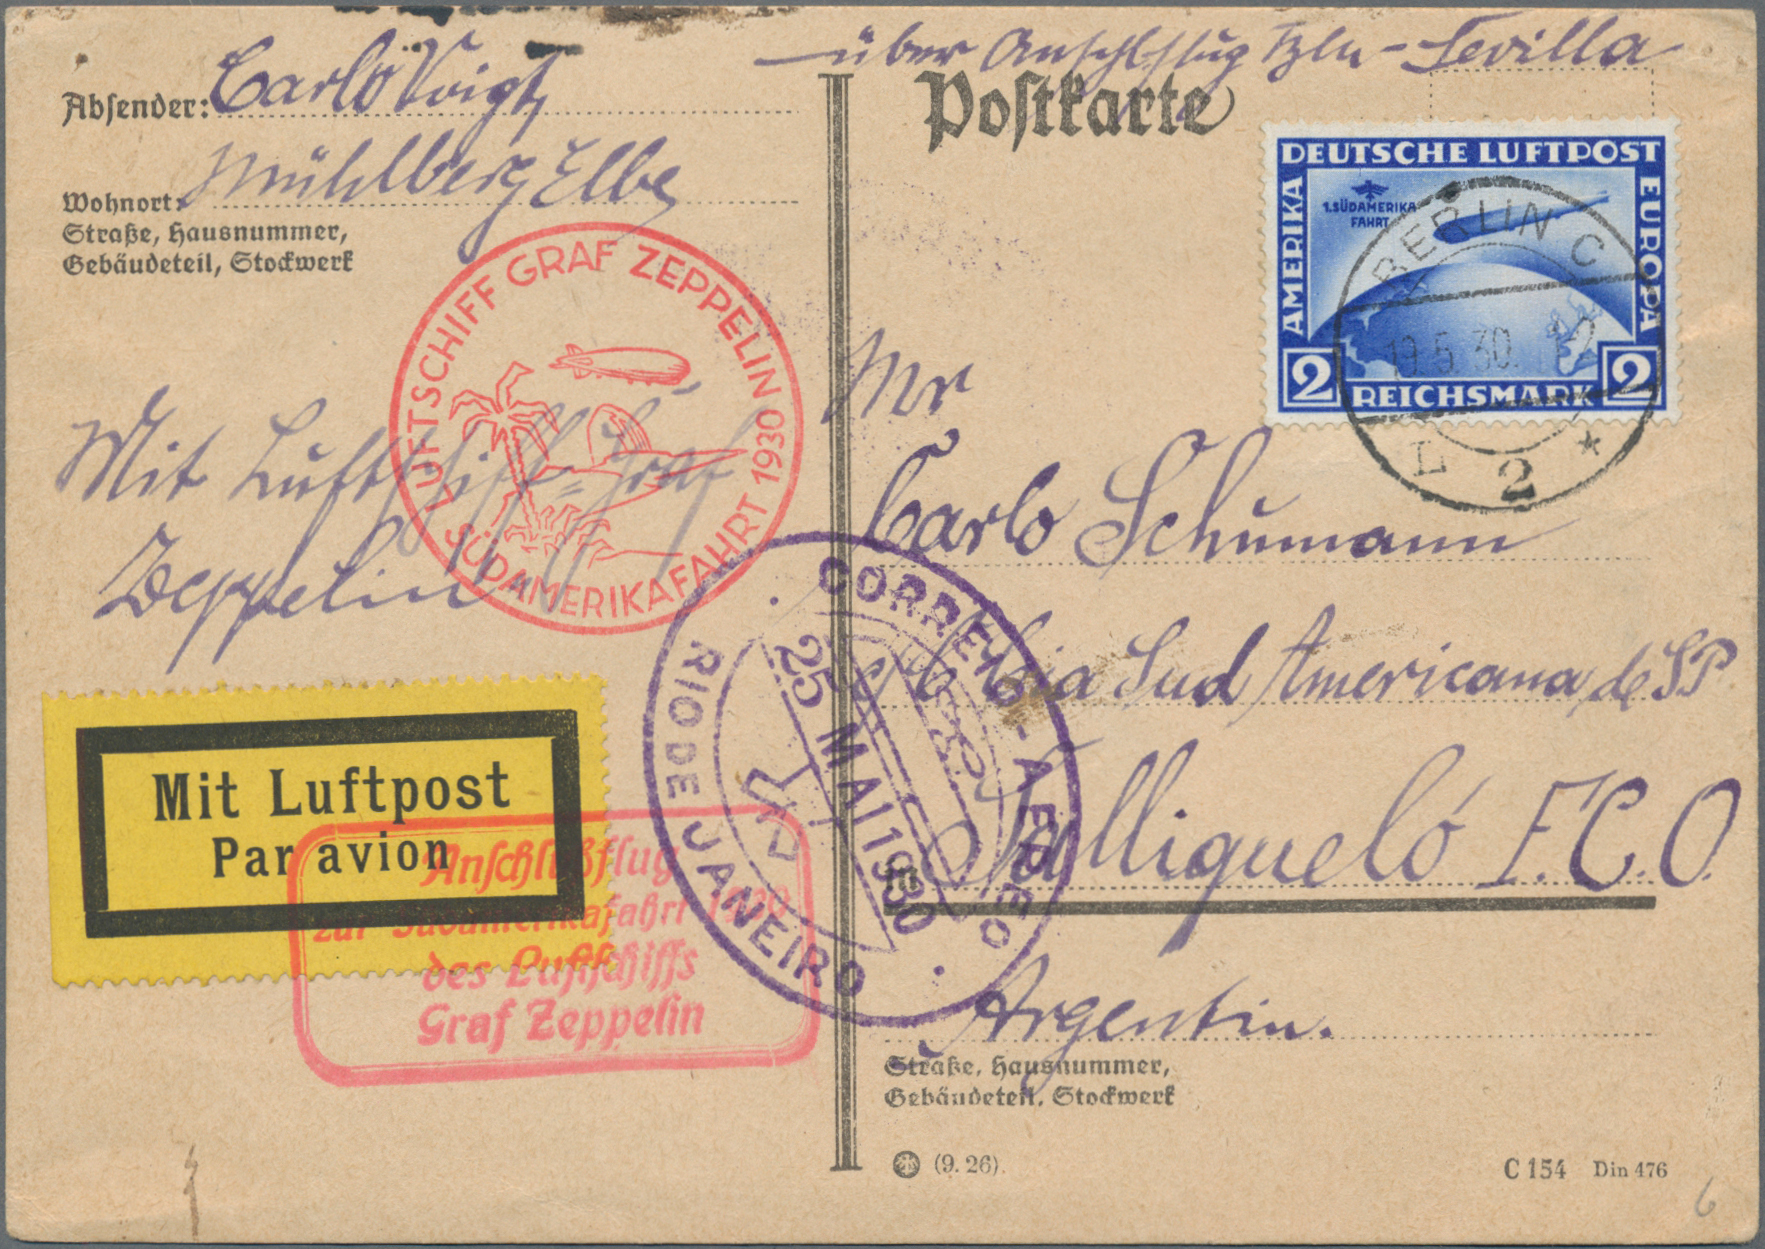 über Anschlflug Bln - Sevilla
Absender: Carlo Voigt
Mühlberg Elbe
Wohnort:
Straße, Hausnummer,
Gebäudeteil, Stockwerk
Mit Luftschiff = Graf
Zeppelin
LUFTSCHIFF GRAF ZEPPELIN
SÜDAMERIKAFAHRT 1930
Mit Luftpost
Par avion
Anschlußflug
zur Südamerikafahrt 1930
des Luftschiffs
Graf Zeppelin
CORREIO - AEREO
25 MAI 1930
RIO DE JANEIRO
Postkarte
DEUTSCHE LUFTPOST
AMERIKA
EUROPA
1.SÜDAMERIKA
FAHRT
2 REICHSMARK 2
BERLIN C
19.5.30.
L 2 *
Mr
Carlo Schumann
Sud Americana de SP
in Salliqueló F.C.O.
Argentin.
Straße, Hausnummer,
Gebäudeteil, Stockwerk
(9. 26).
C 154 Din 476
6